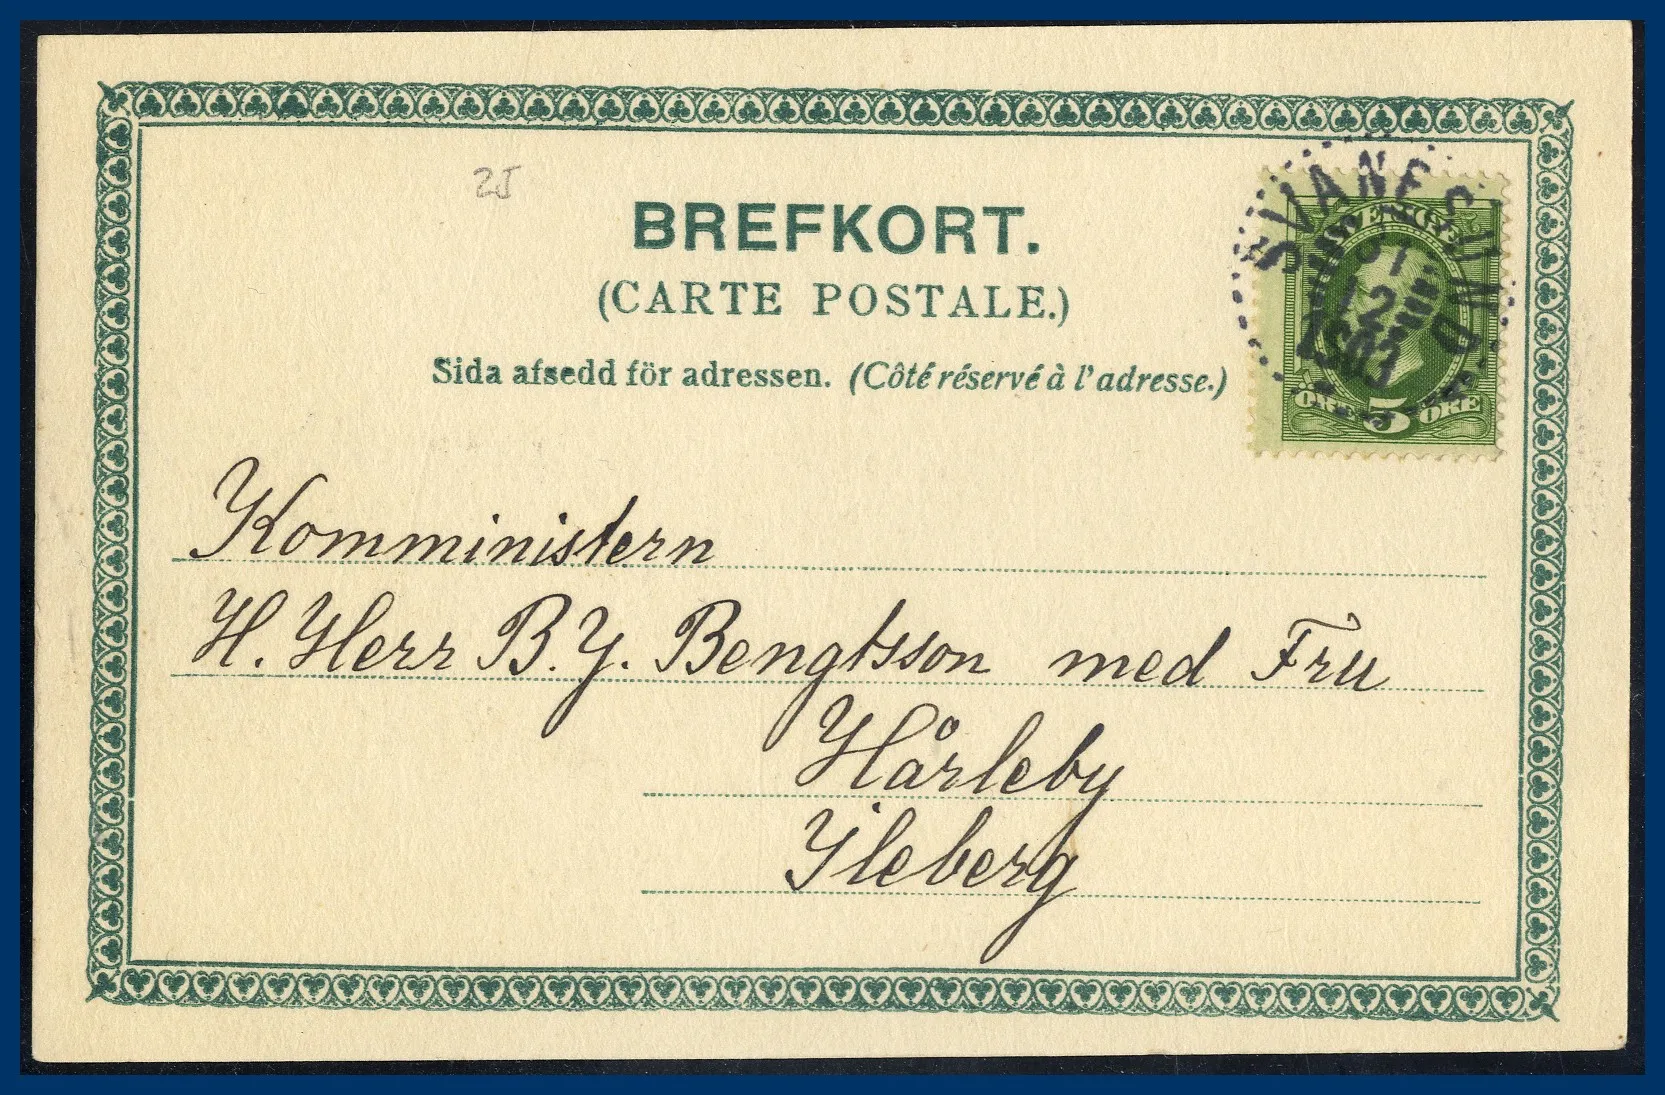 25
BREFKORT.
(CARTE POSTALE.)
Sida afsedd för adressen. (Côté réservé à l'adresse.)
SVANESUND
31
12
1903
SVERIGE
5
ÖRE ÖRE
Komministern
H. Herr B. Y. Bengtsson med Fru
Hårleby
Ileberg